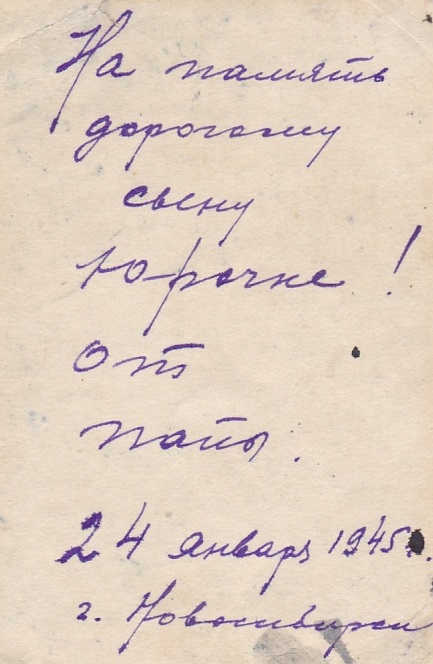 На память
дорогому
сыну
Юрочке !
От
папы.
24 января 1945г.
г. Новосибирск